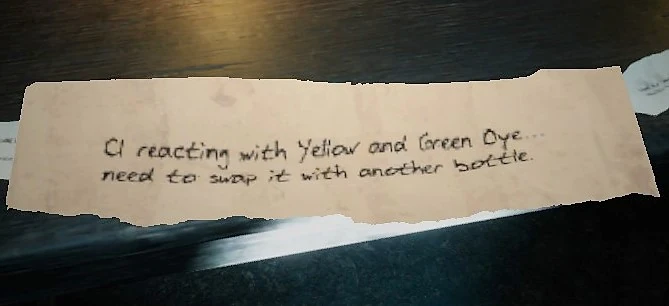 Cl reacting with Yellow and Green Dye...
need to swap it with another bottle.